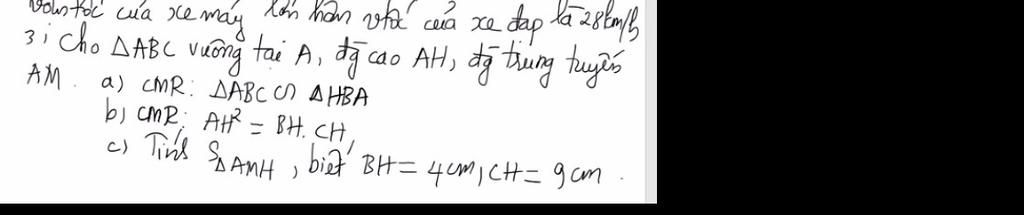 vận tốc của xe máy lớn hơn vtốc của xe đạp là 28km/h
3; Cho △ABC vuông tại A, đg cao AH, đg trung tuyến
AM. a) CMR: △ABC ∽ △HBA
b) CMR: AH² = BH. CH
c) Tính S△AMH, biết BH = 4cm, CH = 9cm.